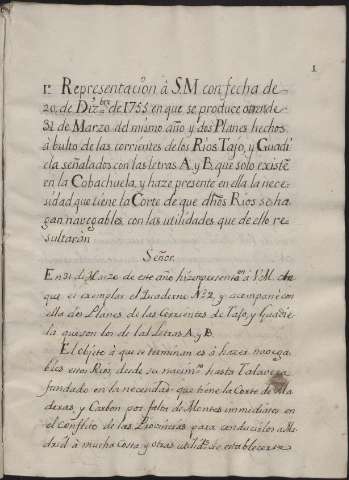 1
1.ª Representacion à S.M con fecha de
20, de Diz.bre de 1755 en que se produce otra de
31 de Marzo del mismo año y dos Planes hechos
à bulto de las corrientes de los Rios Tajo, y Guadi
ela señalados con las letras A, y B, que solo existē
en la Cobachuela, y haze presente en ella la nece-
sidad que tiene la Corte de que dhos Rios se ha-
gan navegables con las utilidades que de ello re-
sultarán
Señor.
En 31 de Marzo de este año hize representaⁿ à V.M. que
es el exemplar el Quaderno N.º 2, y acompañé con
ella dos Planes de las Corrientes de Tajo, y Guadie-
la que son los de las Letras A, y B.
El objeto à que se terminan es à hazer navega-
bles estos Rios desde su nacimᵗᵒ hasta Talavera
fundado en la necesidad que tiene la Corte de Ma
deras, y Carbon por falta de Montes immediatos en
el conflicto de las Provincias para conducirlos a Ma-
drid à mucha Costa y otras utilidˢ se establecer